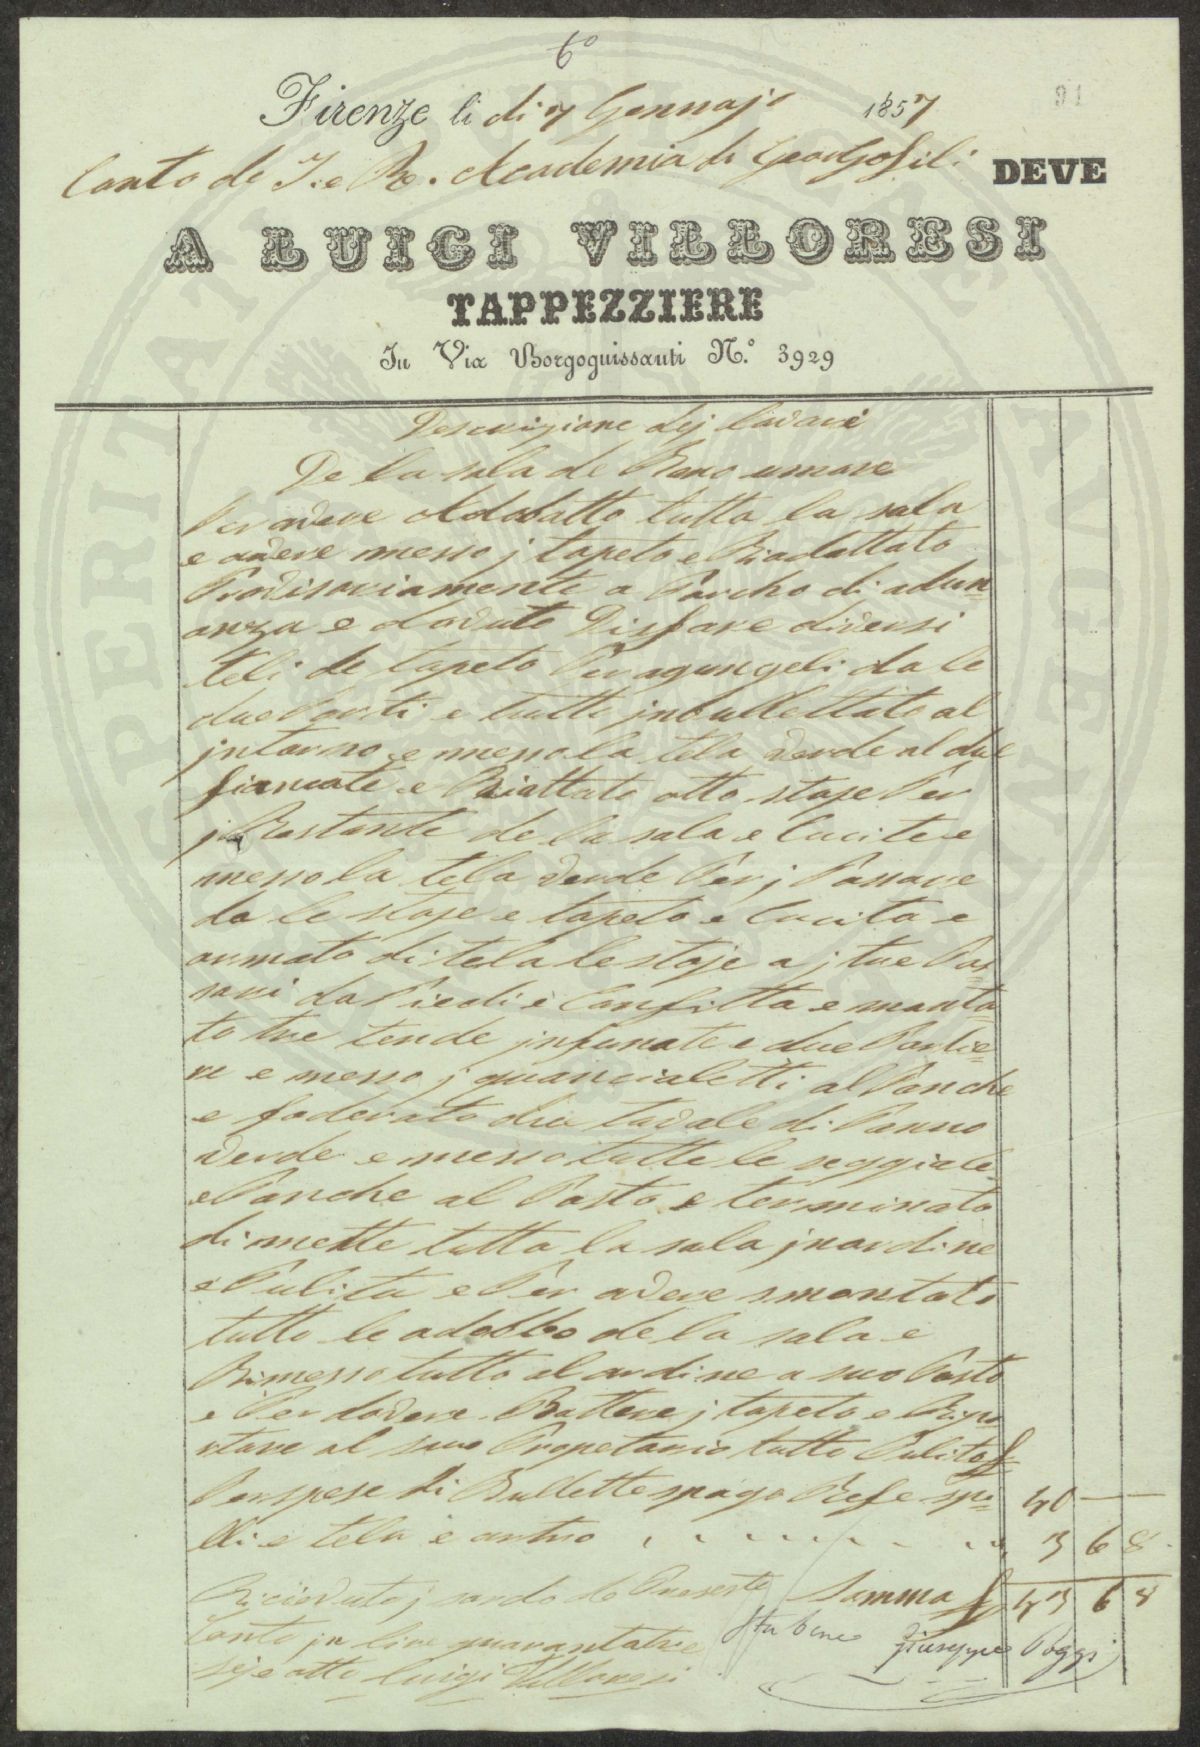 6º
91
Firenze li di 7 Gennajo 1857
Conto de I. e R. Academia di Geogofili DEVE
A LUIGI VILLORESI
TAPPEZZIERE
In Via Borgognissanti N.º 3929
Descrizione dej lavori
De la sala de Buno umore
Per avere Adobatto tutta la sala
e avere messo j tapeto e Riadattato
Provisoriamente a Parcho di adun=
anza e dovuto Disfare diversi
teli de tapeto Per agungeli da le
due Parti e tutto jnbullettato al
jntorno e messo la tela verde al due
fiancate e Riattato otto stoje Per
j Restante de la sala e Cucite e
messo la tela verde Per j Passare
da le stoje e tapeto e Cucita e
armato di tela le stoje a j tre Pas=
sari da Piedi e Confitta e monta=
to tre tende jnfunate e due Portie=
re e messo j guancialetti al Panche
e foderato dua tavole di Panno
verde e messo tutte le seggiole
e Panche al Posto e terminato
di mette tutta la sala jnordine
e Pulita e Per avere smontato
tutto le adobbo de la sala e
Rimesso tutto al ordine a suo Posto
e Per dovere Battere j tapeto e Ripo
rtare al suo Propetario tutto Pulito £ 40 —
Per spese di Bullette spago Refe spi=
lli e tela e antro 3 6 8
Somma £ 43 6 8
Ricievuto j sardo do Presente
Conto jn lire quarantatre
seje otto Luigi Villoresi
Sta bene Giuseppe Poggi
SPERITATI PUBLICAE AUGENDAE